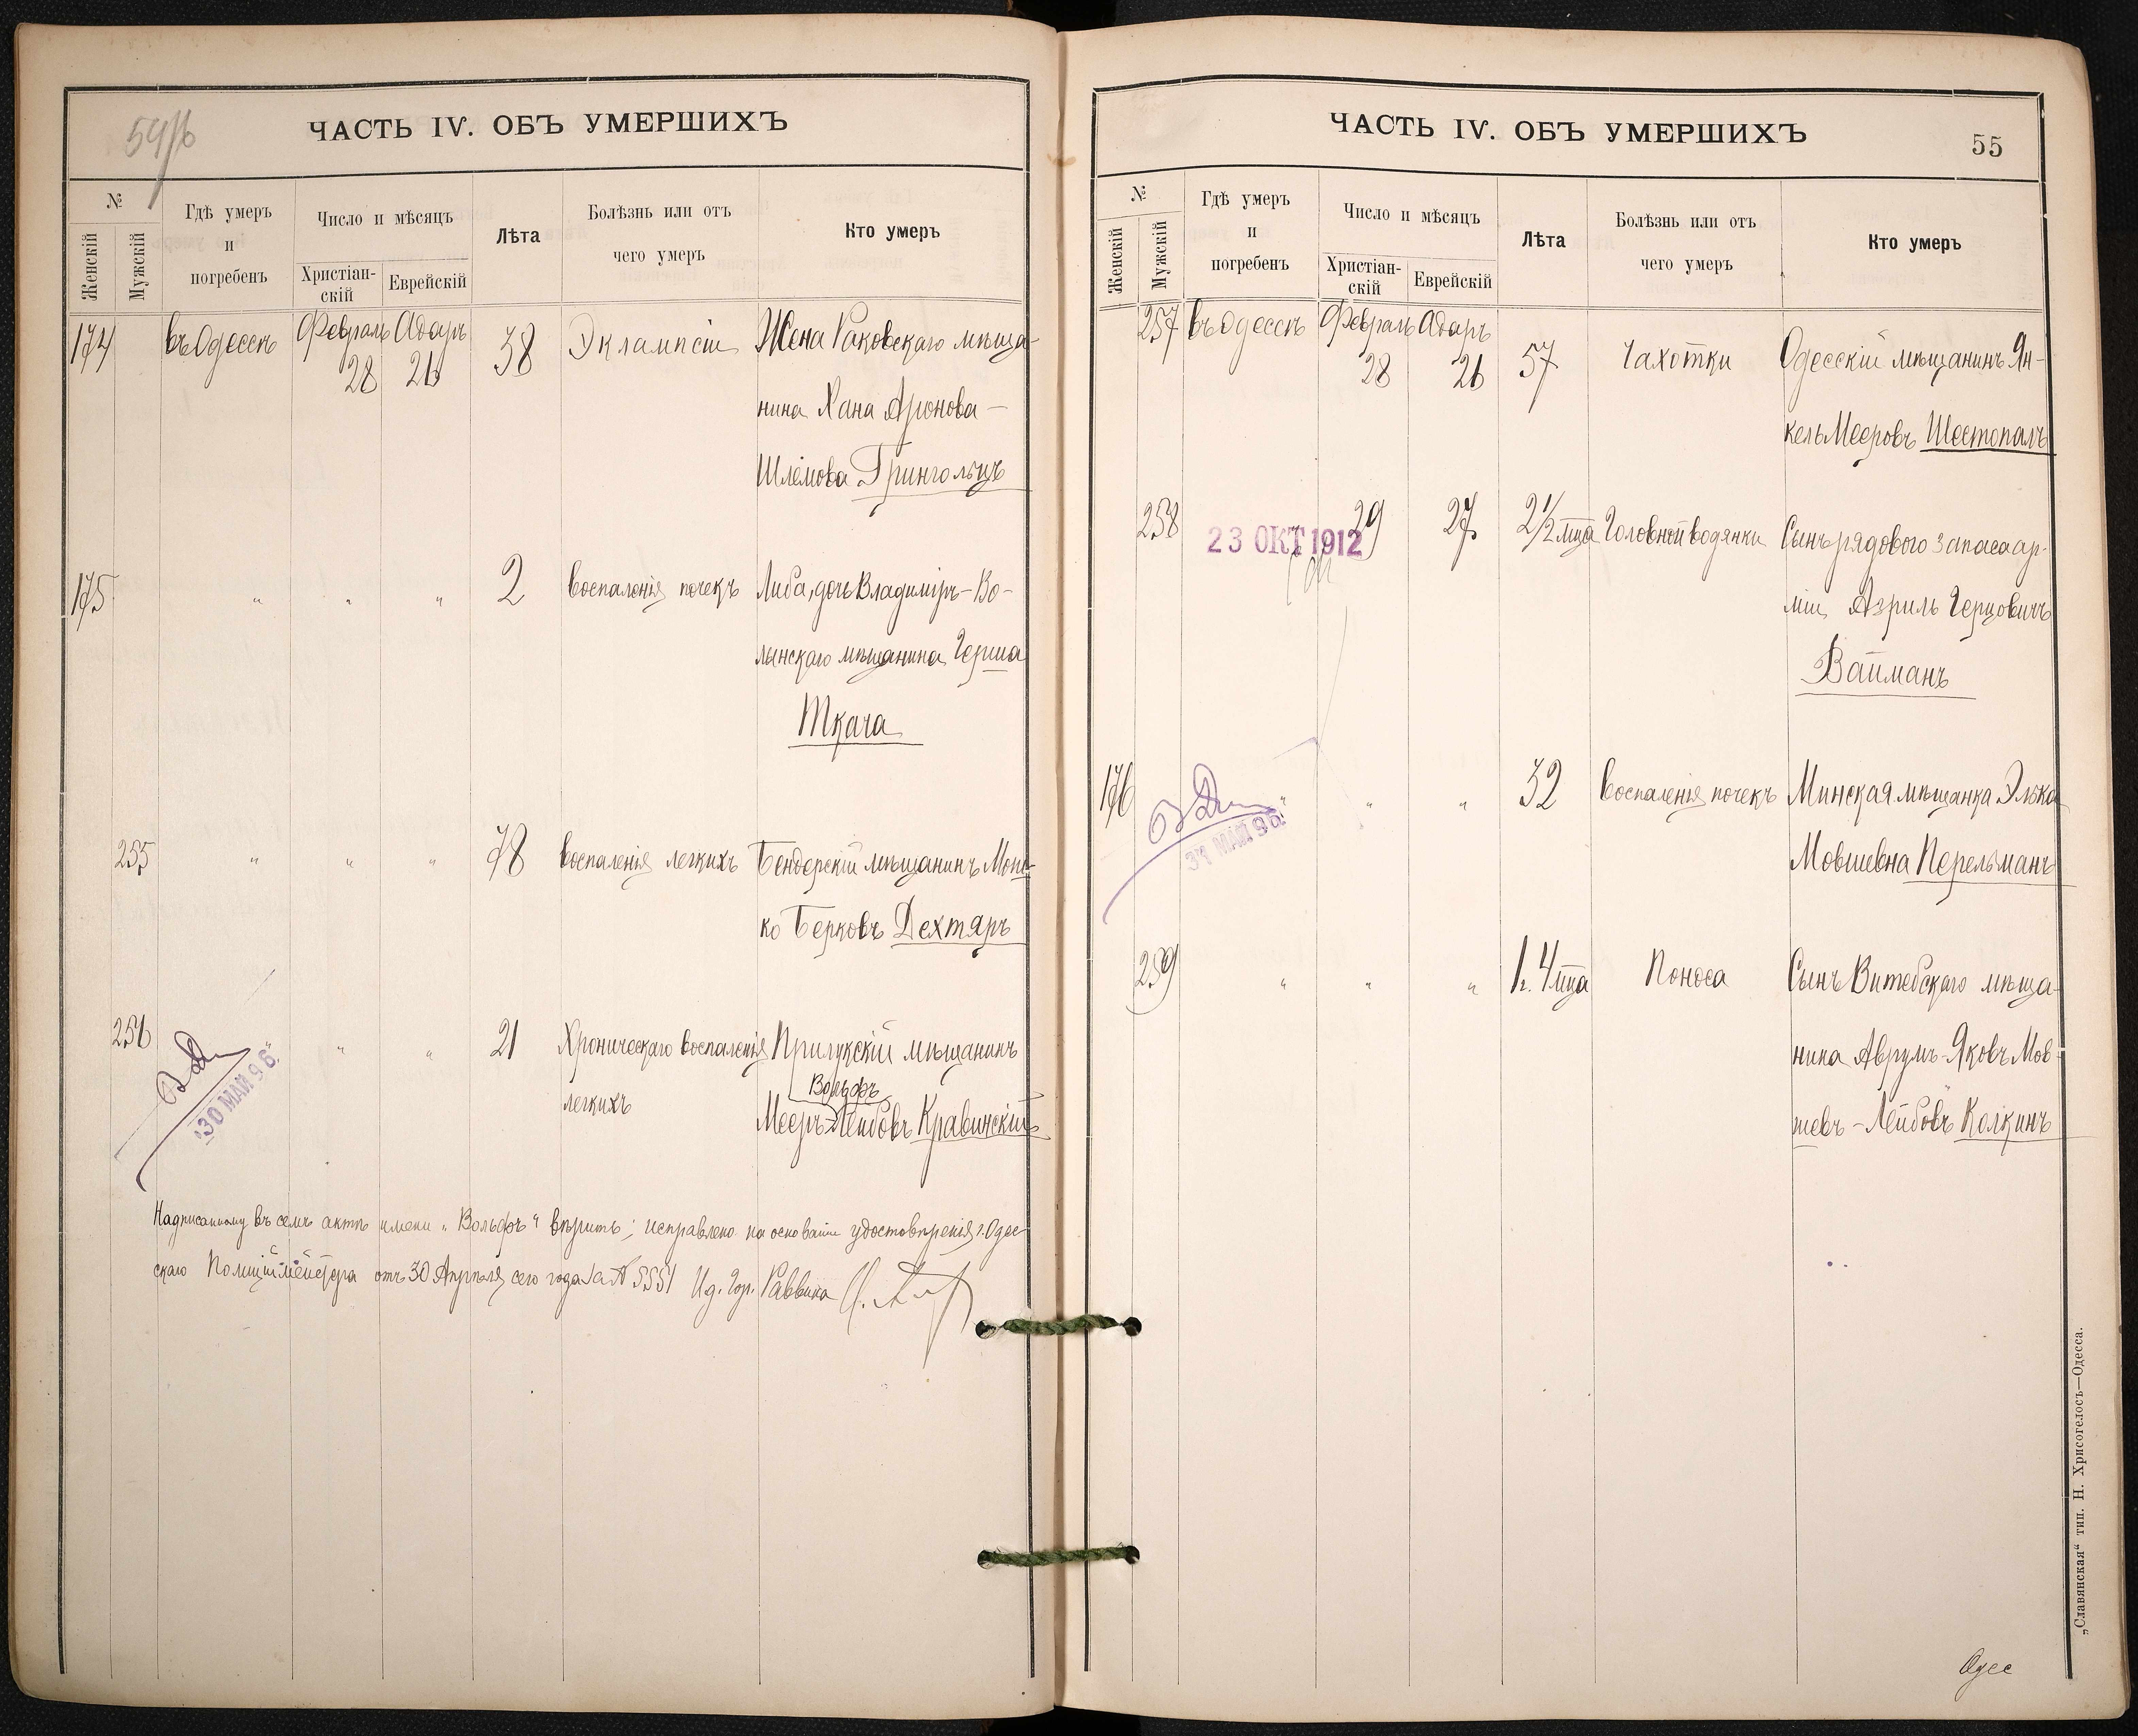 54/б
ЧАСТЬ IV. ОБЪ УМЕРШИХЪ
№
Женскій
Мужскій
Гдѣ умеръ
и
погребенъ
Число и мѣсяцъ
Христіан-
скій
Еврейскій
Лѣта
Болѣзнь или отъ
чего умеръ
Кто умеръ
174 въ Одессѣ Февраль 28 Адаръ 26 38 Эклампсіи Жена Раковскаго мѣща-
нина Хана Аронова-
Шлемова Грингольцъ
175 " " " 2 воспаленія почекъ Либа, дочь Владиміръ-Во-
лынскаго мѣщанина Герша
Ткача
255 " " " 78 воспаленія легкихъ Бендерскій мѣщанинъ Мош-
ко Берковъ Дехтяръ
256 " " 21 Хроническаго воспаленія Прилукскій мѣщанинъ
Вольфъ
легкихъ Мееръ-Лейбовъ Кравинскій
30 МАЙ 96
Надписанному въ семъ актѣ имени „Вольфъ" вѣрить; исправлено на основаніи удостовѣренія г. Одес-
скаго Полиціймейстера отъ 30 Апрѣля сего года за № 5551 И. д. Гор. Раввина
ЧАСТЬ IV. ОБЪ УМЕРШИХЪ
55
№
Женскій
Мужскій
Гдѣ умеръ
и
погребенъ
Число и мѣсяцъ
Христіан-
скій
Еврейскій
Лѣта
Болѣзнь или отъ
чего умеръ
Кто умеръ
257 въ Одессѣ Февраль 28 Адаръ 26 57 Чахотки Одесскій мѣщанинъ Ян-
кель Мееровъ Шестопалъ
258 29 27 2½ мца Головной водянки Сынъ рядового запаса ар-
міи Азриль Герцовичъ
Вайманъ
23 ОКТ 1912
176 " " " 32 воспаленія почекъ Минская мѣщанка Элька
Мовшевна Перельманъ
31 МАЙ 96
259 " " " 1 г. 4 мца Поноса Сынъ Витебскаго мѣща-
нина Аврумъ-Яковъ Мов-
шевъ-Лейбовъ Колкинъ
Одес
„Славянская" тип. Н. Хрисогелосъ—Одесса.